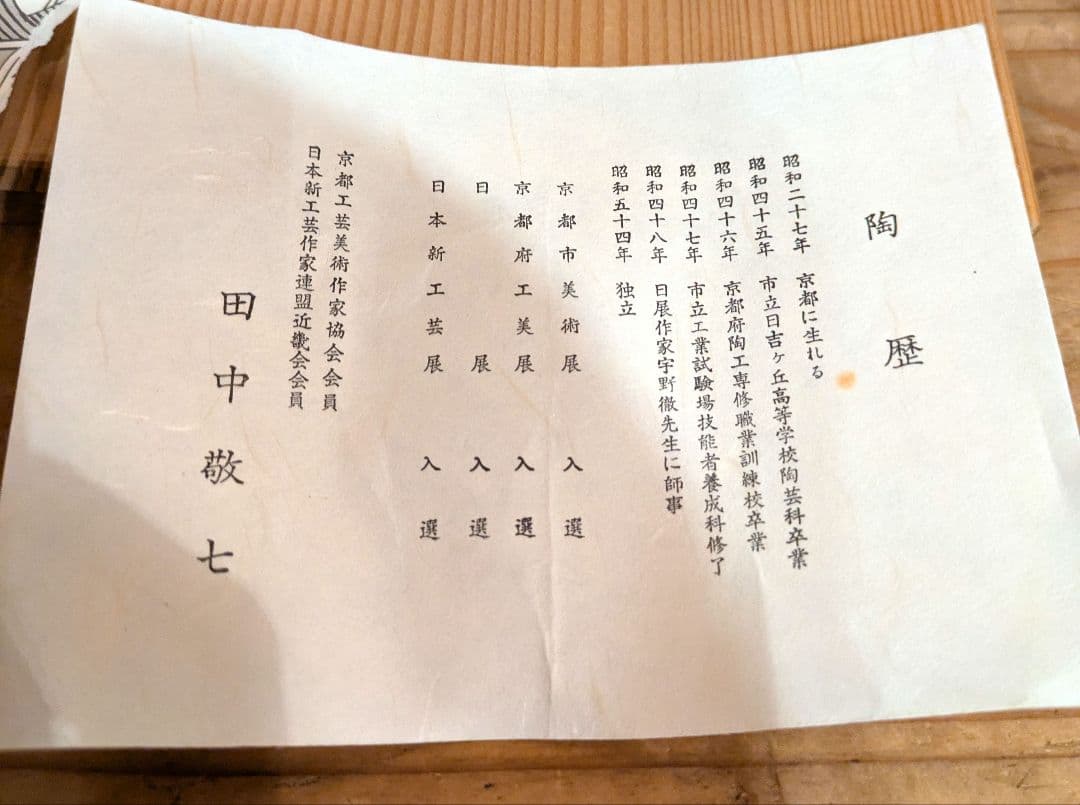 陶歴
昭和二十七年 京都に生れる
昭和四十五年 市立日吉ヶ丘高等学校陶芸科卒業
昭和四十六年 京都府陶工専修職業訓練校卒業
昭和四十七年 市立工業試験場技能者養成科修了
昭和四十八年 日展作家宇野徹先生に師事
昭和五十四年 独立
京都市美術展 入選
京都府工美展 入選
日展 入選
日本新工芸展 入選
京都工芸美術作家協会会員
日本新工芸作家連盟近畿会会員
田中敬七